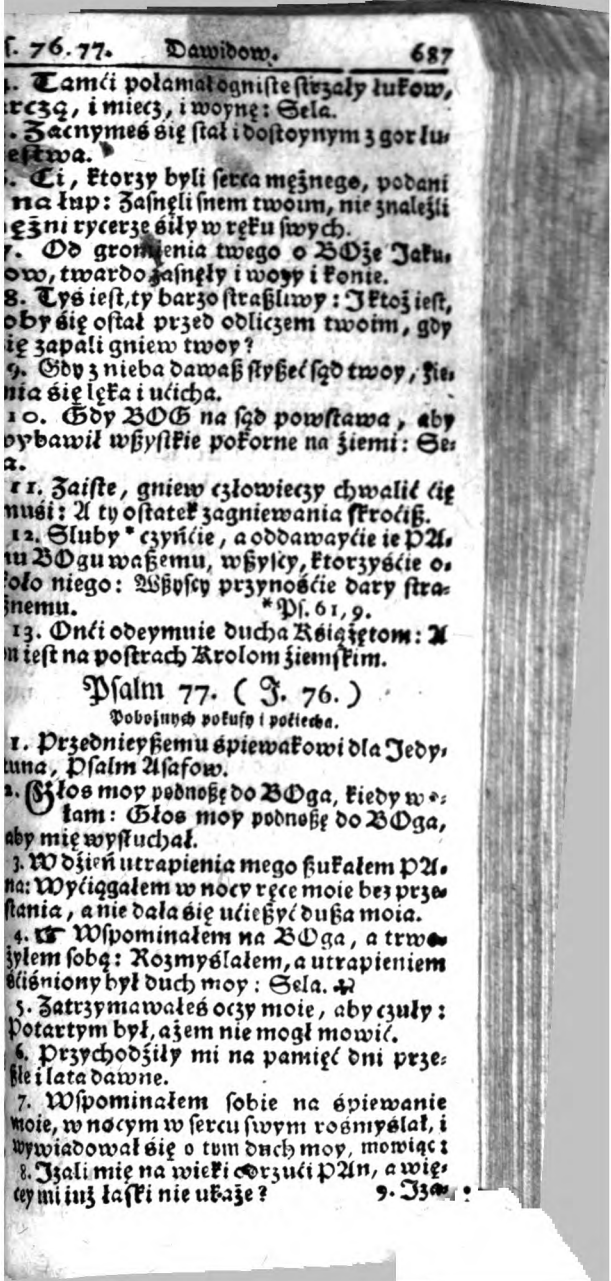 ſ. 76.77. Dawidow. 687
4. Tamći połamał ogniſte ſtrzały łukow,
arczą, i miecz, i woynę: Sela.
. Zacnymeś się ſtał i doſtoynym z gor łu-
eſtwa.
. Ci, ktorzy byli ſerca mężnego, podani
na łup: Zaſnęli ſnem twoim, nie znaleźli
ężni rycerze śiły w ręku ſwych.
7. Od gromienia twego o BOże Jaku-
ow, twardo zaſnęły i wozy i konie.
8. Tyś ieſt, ty barzo ſtraßliwy: I ktoż ieſt,
oby śię oſtał przed obliczem twoim, gdy
ię zapali gniew twoy?
9. Gdy z nieba dawaß ſłyßeć ſąd twoy, źie-
nia śię lęka i ućicha.
10. Gdy BOG na ſąd powſtawa, aby
wybawił wßyſtkie pokorne na źiemi: Se-
a.
11. Zaiſte, gniew człowieczy chwalić ćię
muśi: A ty oſtatek zagniewania ſkroćiß.
12. Sluby * czyńćie, a oddawayćie ie PA-
nu BOgu waßemu, wßyſcy, ktorzyśćie o-
oło niego: Wßyſcy przynośćie dary ſtra-
ßnemu. *Pſ. 61, 9.
13. Onći odeymuie ducha Książętom: A
n ieſt na poſtrach Krolom źiemſkim.
Pſalm 77. ( J. 76. )
Pobożnych pokuſy i poćiecha.
1. Przednieyßemu śpiewakowi dla Jedy-
tuna, Pſalm Aſafow.
2. Głos moy podnoßę do BOga, kiedy wo-
łam: Głos moy podnoßę do BOga,
aby mię wyſłuchał.
3. W dźień utrapienia mego ßukałem PA-
na: Wyćiągałem w nocy ręce moie bez prze-
ſtania, a nie dała śię ućießyć dußa moia.
4. ☞ Wſpominałem na BOga, a trwo-
żyłem ſobą: Rozmyślałem, a utrapieniem
śćiśniony był duch moy: Sela.
5. Zatrzymawałeś oczy moie, aby czuły:
Potartym był, ażem nie mogł mowić.
6. Przychodźiły mi na pamięć dni prze-
ßłe i lata dawne.
7. Wſpominałem ſobie na śpiewanie
moie, w nocym w ſercu ſwym rośmyślał, i
wywiadował śię o tym duch moy, mowiąc:
8. Izali mię na wieki odrzući PAn, a wię-
cey mi już łaſki nie ukaże? 9. Iza-